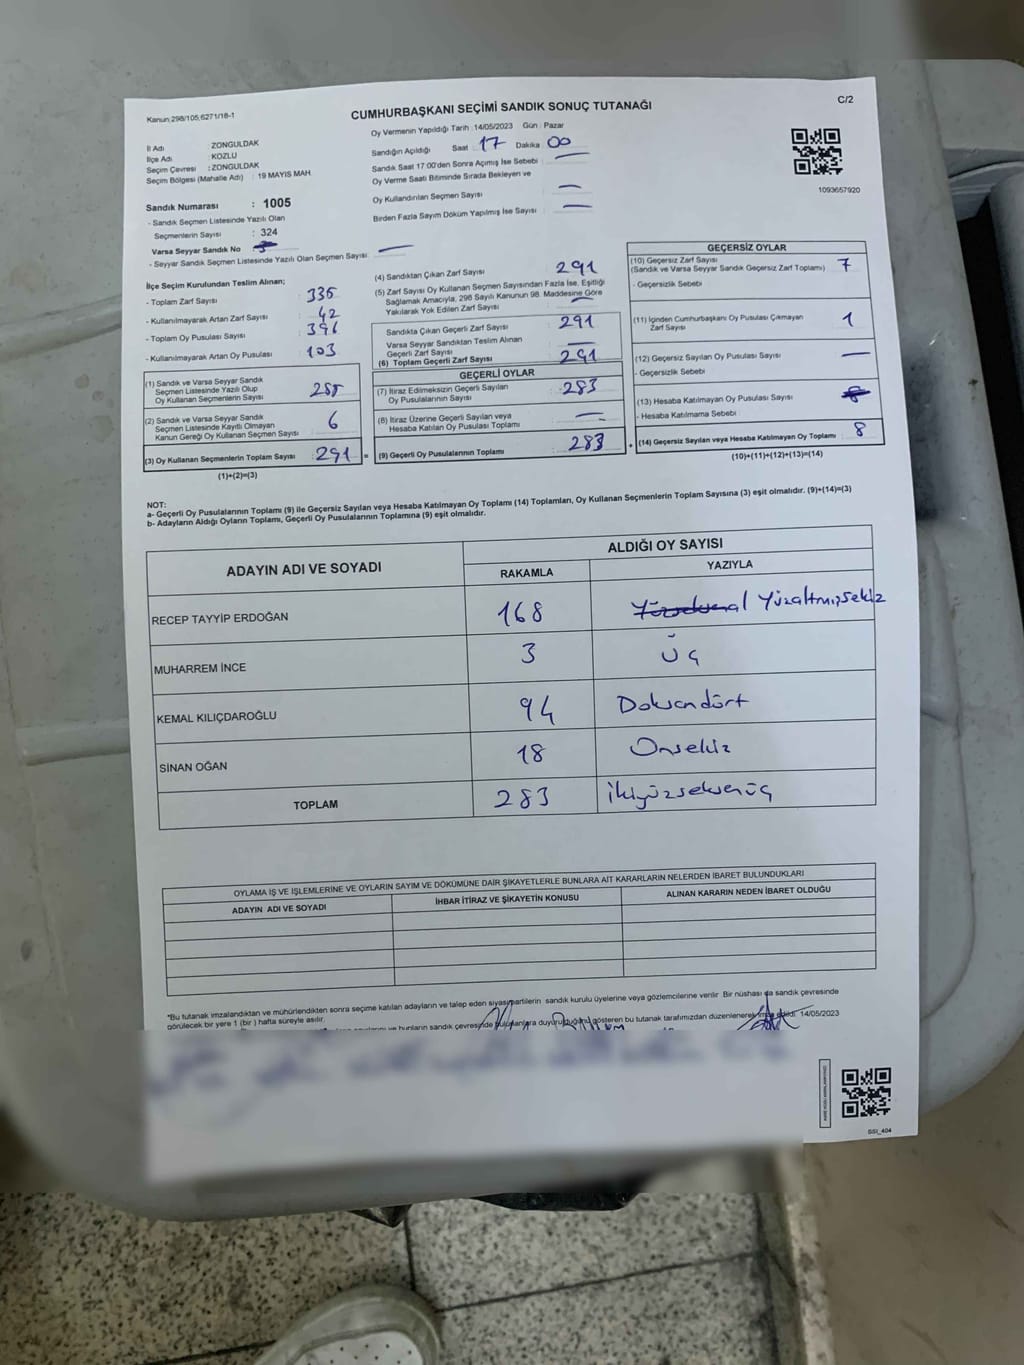 Kanun:298/105,6271/18-1
CUMHURBAŞKANI SEÇİMİ SANDIK SONUÇ TUTANAĞI
C/2
Oy Vermenin Yapıldığı Tarih :14/05/2023 Gün : Pazar
İl Adı : ZONGULDAK
İlçe Adı : KOZLU
Seçim Çevresi : ZONGULDAK
Seçim Bölgesi (Mahalle Adı) : 19 MAYIS MAH
Sandığın Açıldığı Saat 17 Dakika 00
Sandık Saat 17:00'den Sonra Açımış İse Sebebi : —
Oy Verme Saati Bitiminde Sırada Bekleyen ve
Oy Kullandırılan Seçmen Sayısı : —
Birden Fazla Sayım Döküm Yapılmış İse Sayısı : —
1093657920
Sandık Numarası : 1005
- Sandık Seçmen Listesinde Yazılı Olan
Seçmenlerin Sayısı : 324
Varsa Seyyar Sandık No
- Seyyar Sandık Seçmen Listesinde Yazılı Olan Seçmen Sayısı : —
İlçe Seçim Kurulundan Teslim Alınan;
- Toplam Zarf Sayısı : 335
- Kullanılmayarak Artan Zarf Sayısı : 42
- Toplam Oy Pusulası Sayısı : 396
- Kullanılmayarak Artan Oy Pusulası : 103
(1) Sandık ve Varsa Seyyar Sandık
Seçmen Listesinde Yazılı Olup
Oy Kullanan Seçmenlerin Sayısı 285
(2) Sandık ve Varsa Seyyar Sandık
Seçmen Listesinde Kayıtlı Olmayan
Kanun Gereği Oy Kullanan Seçmen Sayısı 6
(3) Oy Kullanan Seçmenlerin Toplam Sayısı : 291 =
(1)+(2)=(3)
(4) Sandıktan Çıkan Zarf Sayısı 291
(5) Zarf Sayısı Oy Kullanan Seçmen Sayısından Fazla İse, Eşitliği
Sağlamak Amacıyla, 298 Sayılı Kanunun 98. Maddesine Göre
Yakılarak Yok Edilen Zarf Sayısı —
Sandıkta Çıkan Geçerli Zarf Sayısı 291
Varsa Seyyar Sandıktan Teslim Alınan
Geçerli Zarf Sayısı —
(6) Toplam Geçerli Zarf Sayısı 291
GEÇERLİ OYLAR
(7) İtiraz Edilmeksizin Geçerli Sayılan
Oy Pusulalarının Sayısı 283
(8) İtiraz Üzerine Geçerli Sayılan veya
Hesaba Katılan Oy Pusulası Toplamı —
(9) Geçerli Oy Pusulalarının Toplamı 283 +
GEÇERSİZ OYLAR
(10) Geçersiz Zarf Sayısı
(Sandık ve Varsa Seyyar Sandık Geçersiz Zarf Toplamı) 7
- Geçersizlik Sebebi
(11) İçinden Cumhurbaşkanı Oy Pusulası Çıkmayan
Zarf Sayısı 1
(12) Geçersiz Sayılan Oy Pusulası Sayısı —
- Geçersizlik Sebebi
(13) Hesaba Katılmayan Oy Pusulası Sayısı
- Hesaba Katılmama Sebebi
(14) Geçersiz Sayılan veya Hesaba Katılmayan Oy Toplamı 8
(10)+(11)+(12)+(13)=(14)
NOT:
a- Geçerli Oy Pusulalarının Toplamı (9) ile Geçersiz Sayılan veya Hesaba Katılmayan Oy Toplamı (14) Toplamları, Oy Kullanan Seçmenlerin Toplam Sayısına (3) eşit olmalıdır. (9)+(14)=(3)
b- Adayların Aldığı Oyların Toplamı, Geçerli Oy Pusulalarının Toplamına (9) eşit olmalıdır.
ADAYIN ADI VE SOYADI
ALDIĞI OY SAYISI
RAKAMLA YAZIYLA
RECEP TAYYİP ERDOĞAN 168 Yüzaltmışsekiz
MUHARREM İNCE 3 Üç
KEMAL KILIÇDAROĞLU 94 Doksandört
SİNAN OĞAN 18 Onsekiz
TOPLAM 283 ikiyüzseksenüç
OYLAMA İŞ VE İŞLEMLERİNE VE OYLARIN SAYIM VE DÖKÜMÜNE DAİR ŞİKAYETLERLE BUNLARA AİT KARARLARIN NELERDEN İBARET BULUNDUKLARI
ADAYIN ADI VE SOYADI İHBAR İTİRAZ VE ŞİKAYETİN KONUSU ALINAN KARARIN NEDEN İBARET OLDUĞU
*Bu tutanak imzalandıktan ve mühürlendikten sonra seçime katılan adayların ve talep eden siyasi partilerin sandık kurulu üyelerine veya gözlemcilerine verilir Bir nüshası da sandık çevresinde
görülecek bir yere 1 (bir ) hafta süreyle asılır.
ve bunların sandık çevresinde bulunanlara duyurulduğunu gösteren bu tutanak tarafımızdan düzenlenerek imza edildi. 14/05/2023
SSI_404